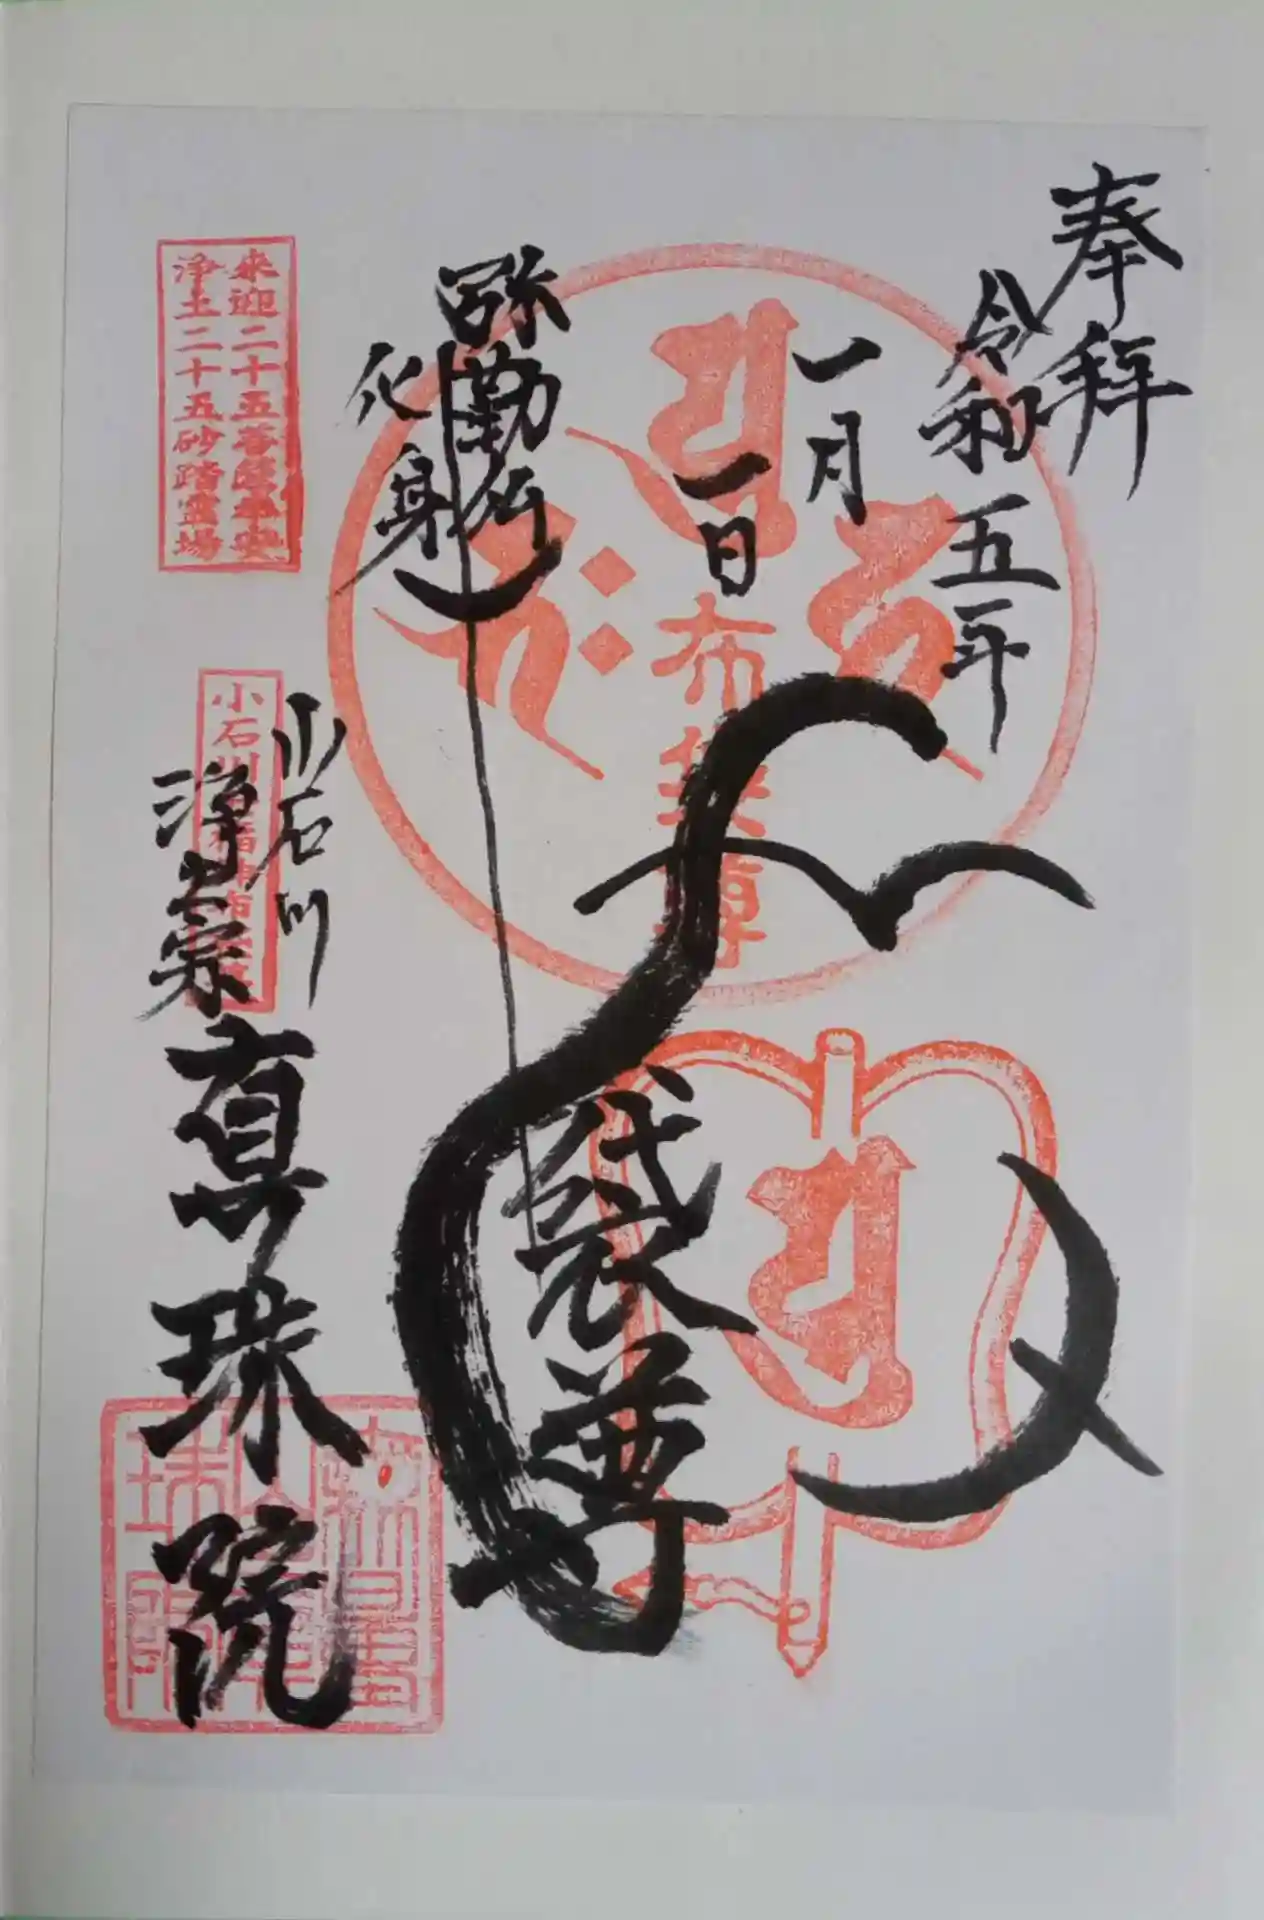 奉拝
令和五年
一月
一日
弥勒仏
化身
布袋尊
袋尊
小石川
浄土宗
真珠院
来迎二十五菩薩平安
浄土二十五砂踏霊場
小石川